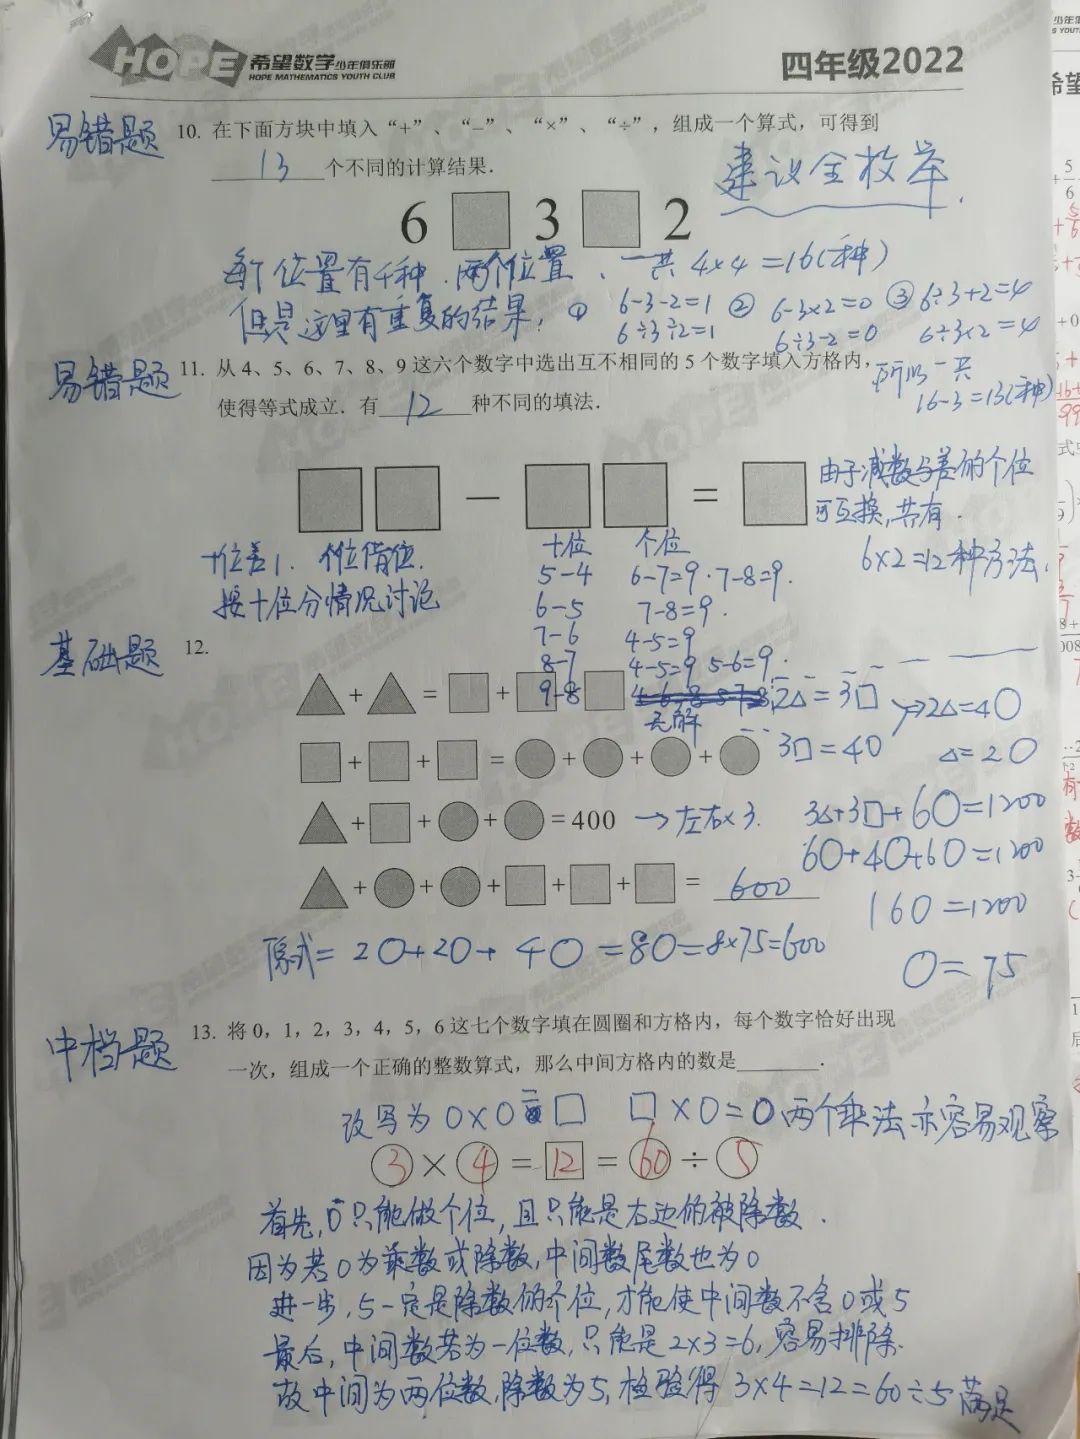 HOPE 希望数学少年俱乐部
HOPE MATHEMATICS YOUTH CLUB
四年级2022
易错题
10. 在下面方块中填入“+”、“−”、“×”、“÷”，组成一个算式，可得到
13 个不同的计算结果.
建议全枚举.
6 □ 3 □ 2
每个位置有4种.两个位置、一共4×4=16(种)
但是这里有重复的结果: ① 6-3-2=1 ② 6-3×2=0 ③ 6÷3+2=4
6÷3÷2=1 6÷3-2=0 6÷3×2=4
所以一共
16-3=13(种)
易错题
11. 从 4、5、6、7、8、9 这六个数字中选出互不相同的 5 个数字填入方格内，
使得等式成立. 有 12 种不同的填法.
□□ − □□ = □
由于减数与差的个位
可互换,共有.
6×2=12种方法.
十位差1. 个位借位.
按十位分情况讨论
十位 个位
5-4 6-7=9 · 7-8=9.
6-5 7-8=9.
7-6 4-5=9
8-7 4-5=9 5-6=9.
9-8
无解
基础题
12.
△+△=□+□+□
2△=3□
→2△=4○
□+□+□=○+○+○+○
3□=4○
△=2○
△+□+○+○=400 →左右×3.
3△+3□+6○=1200
6○+4○+6○=1200
△+○+○+□+□+□= 600
16○=1200
原式=2○+2○+4○=8○=8×75=600
○=75
中档题
13. 将 0，1，2，3，4，5，6 这七个数字填在圆圈和方格内，每个数字恰好出现
一次，组成一个正确的整数算式，那么中间方格内的数是________.
改写为○×○=□ □×○=○两个乘法亦容易观察
3 × 4 = 12 = 60 ÷ 5
首先,0只能做个位,且只能是右边的被除数.
因为若0为乘数或除数,中间数尾数也为0
进一步,5一定是除数的个位,才能使中间数不含0或5
最后,中间数若为一位数,只能是2×3=6,容易排除.
故中间为两位数,除数为5,检验得 3×4=12=60÷5满足